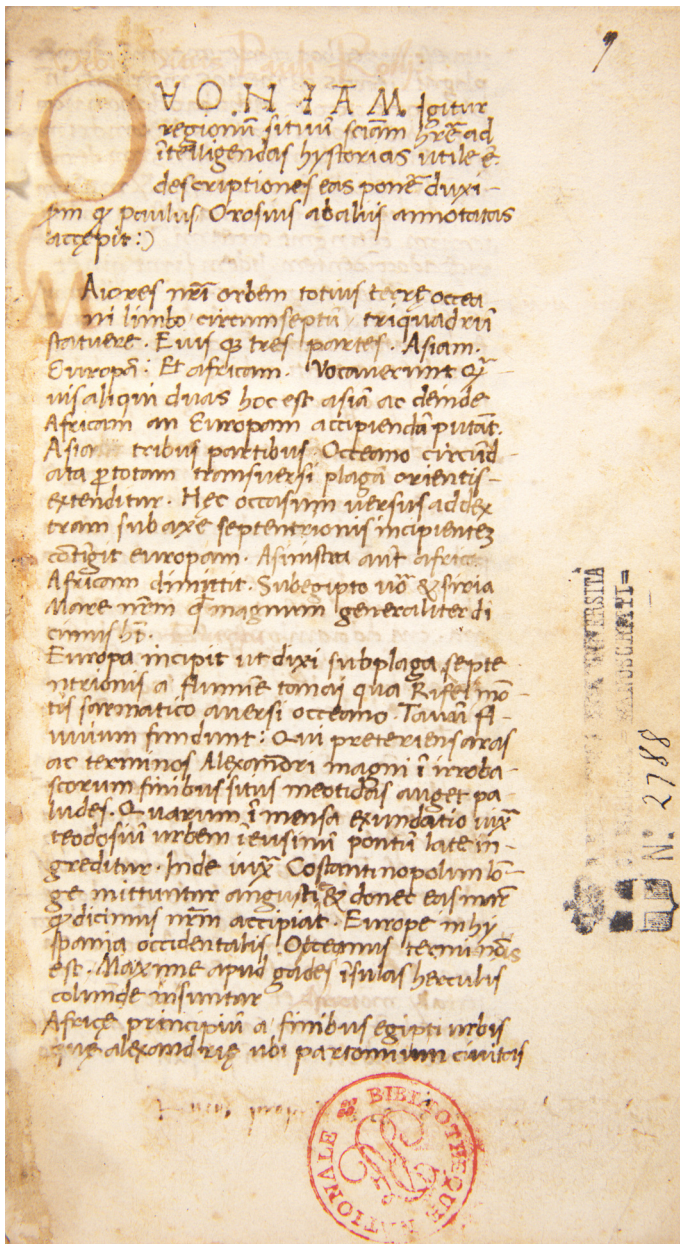 Igitur
regionũ sitiũ sciãm hrẽ ad
ĩtelligendas hystorias utile ẽ.
descriptiones eas ponẽ duxi-
Paulus Orosius ab aliis annotatas
accępit:)
Aiores nrĩ orbem totius terre occea
ni limbo circumseptũ triquadrũ
statuere. Eius qȝ tres partes. Asiam.
Europã: Et africam. Vocaverunt
uis aliqui duas hoc est asiã ac deinde
Africam an Europam accipiendã putãt.
Asia tribus partibus Occeano circũd-
ata ꝑ totam transversi plagã orientis-
extenditur. Hęc occasum versus ad dex
tram sub axe septentrionis incipientẽ
cõtĩgit europam. Asinistra aut̃ africã
Africam dimittit. Sub egipto uõ & siria
Mare nr̃m qd̃ magnum generaliter di
cimus ht̃.
Europa incipit ut dixi sub plaga septe
ntrionis a flumĩe tanai qua Rifei mõ-
tis sarmatico aversi occeano. Tanaũ fl-
uuium fundunt: Qui preteriens aras
ac terminos Alexãdri magni ĩ irroba-
scorum finibus situs meotidas auget pa
ludes. Quarum ĩmensa exundatio iux̃
teodosiũ urbem ĩeusinũ pontũ late in-
greditur. Inde iux̃ Costantinopolum lõ-
ge mittuntur angustię & donec eas mar̃
qd̃ dicimus nr̃m accipiat. Europe in hy
spania occidentalis Occeanus terminus
est. Maxime apud gades ĩsulas herculis
colunde insuntar
Africę principiũ a finibus egipti urbis
quę alexandrię ubi partonium civitas
Nº 2788
BIBLIOTHEQUE NATIONALE